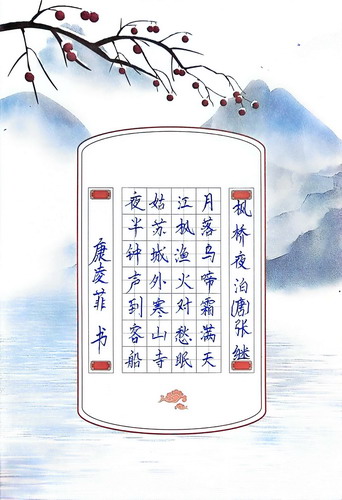 枫桥夜泊(唐)张继
月落乌啼霜满天
江枫渔火对愁眠
姑苏城外寒山寺
夜半钟声到客船
庚凌菲 书